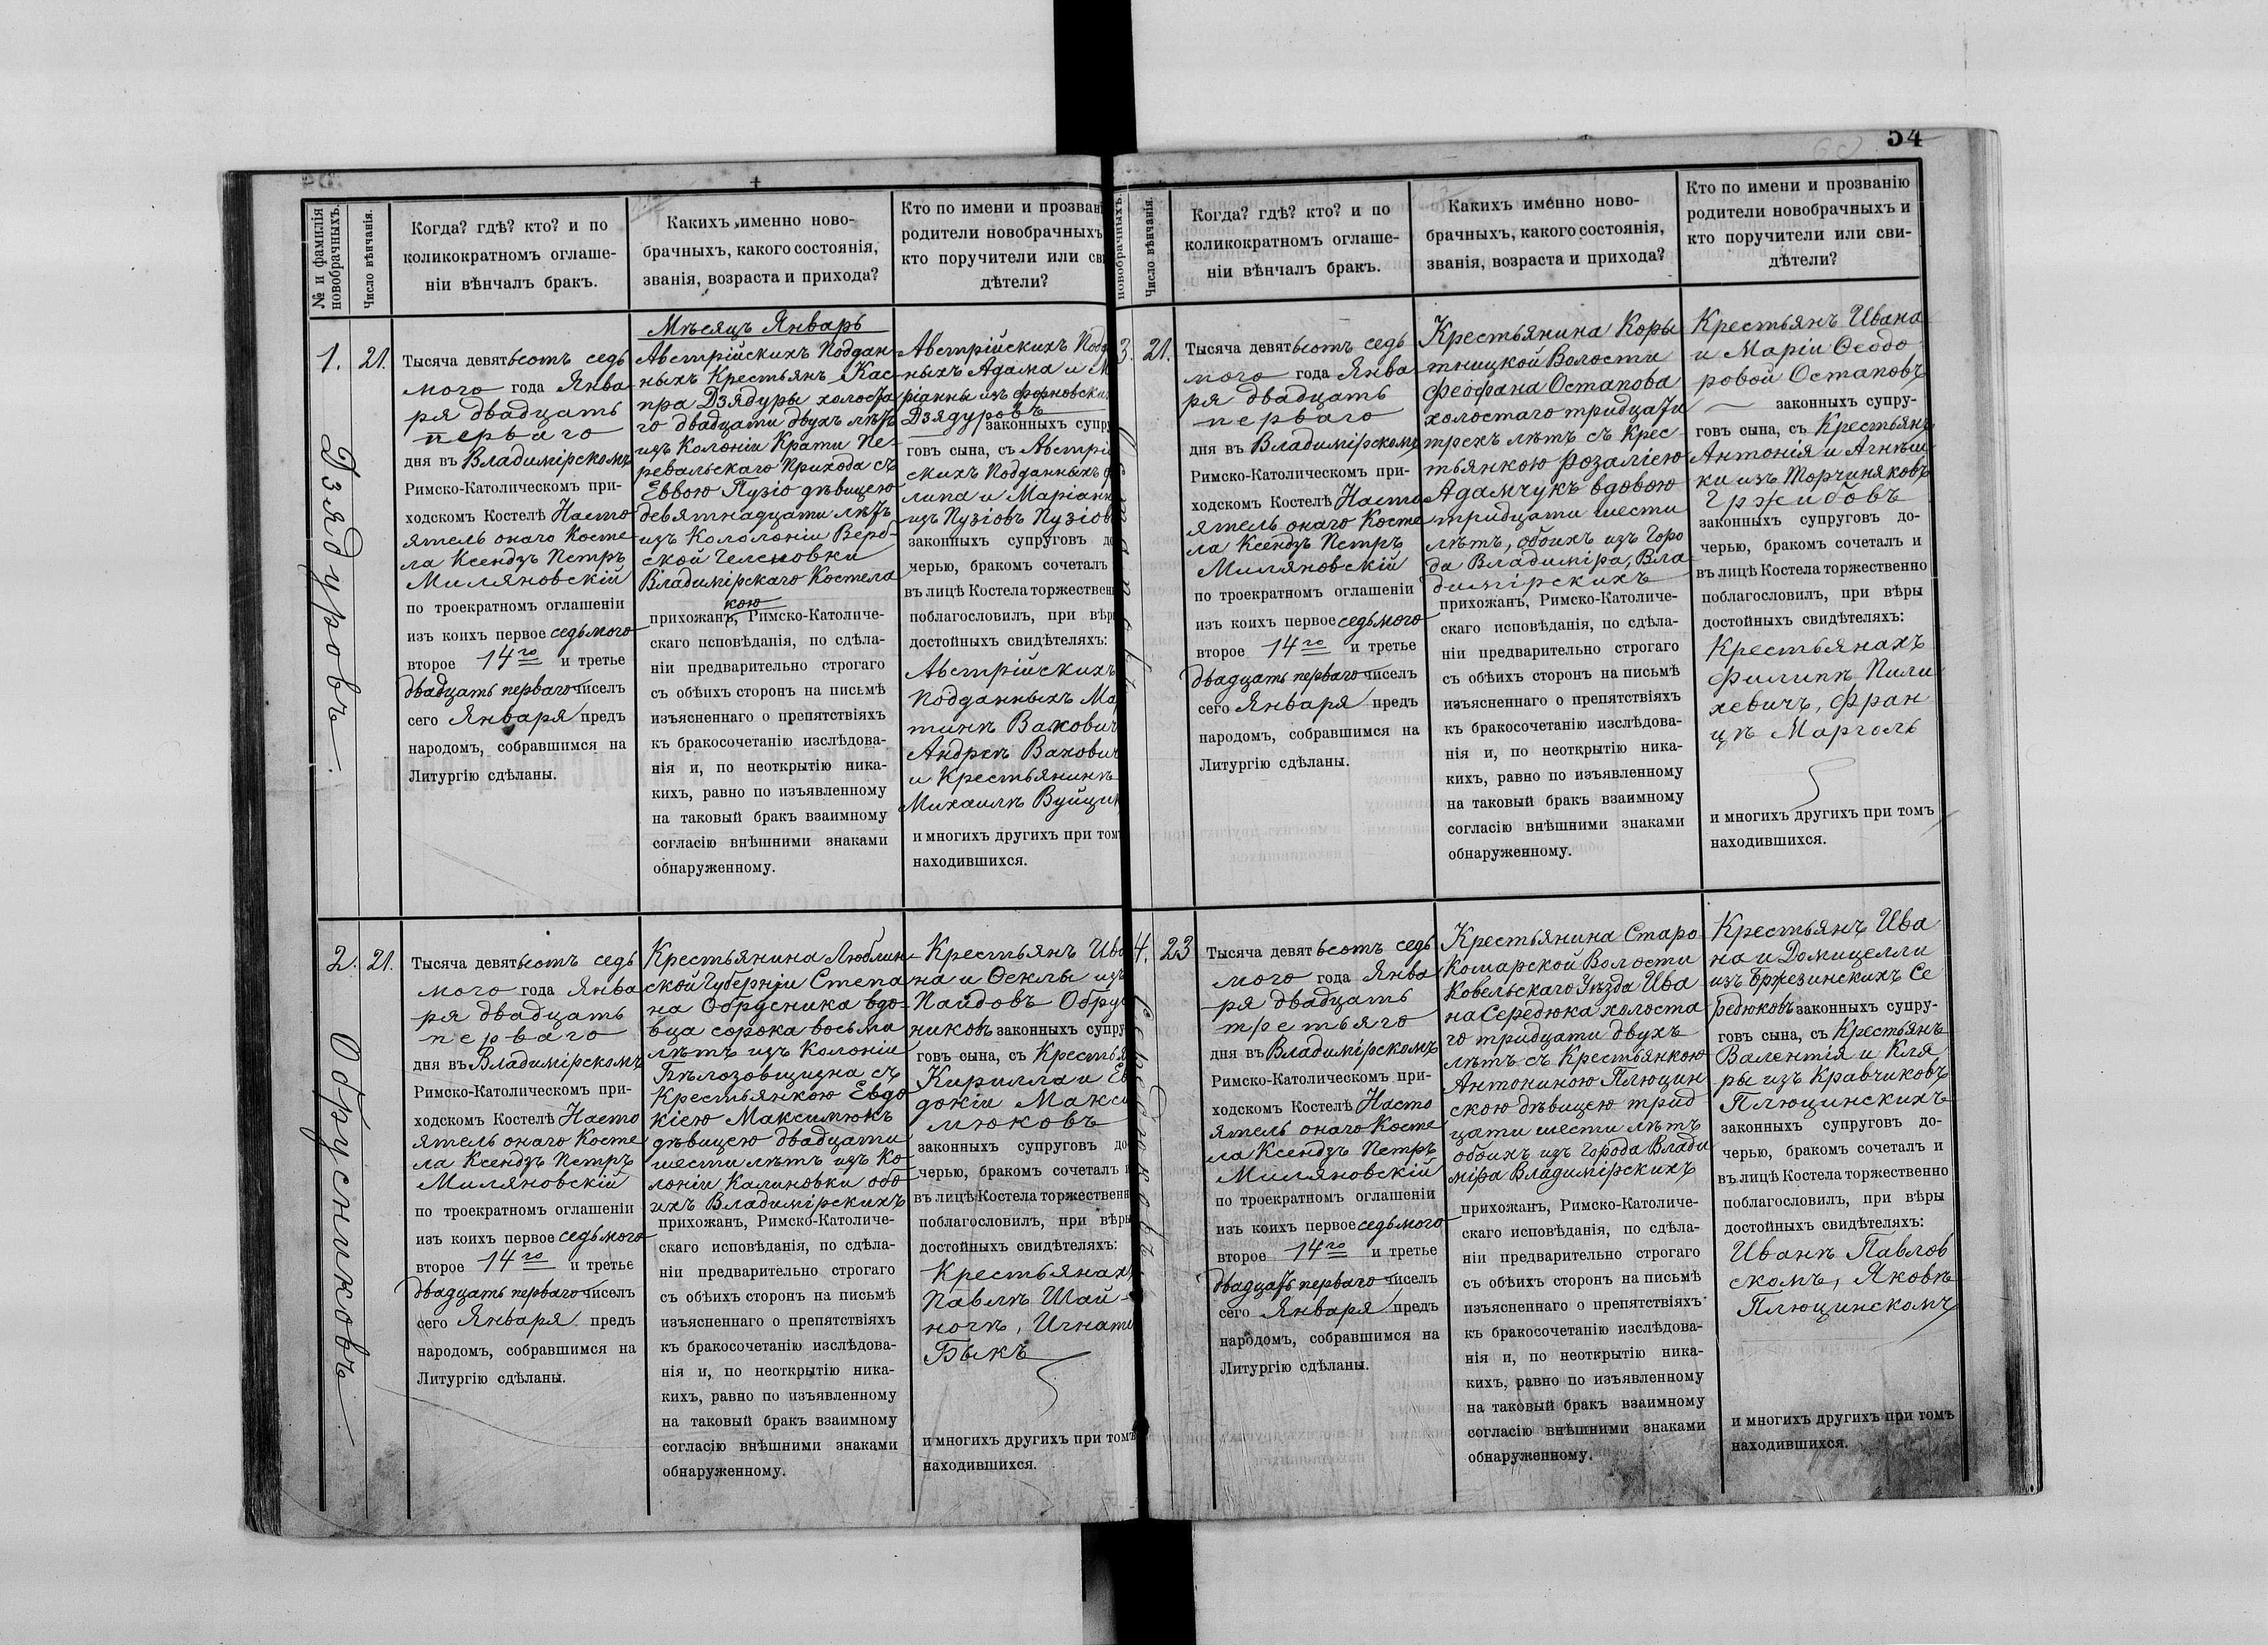 54
№ и фамилія
новобрачныхъ.
Число вѣнчанія.
Когда? гдѣ? кто? и по
коликократномъ оглаше-
ніи вѣнчалъ бракъ.
Какихъ именно ново-
брачныхъ, какого состоянія,
званія, возраста и прихода?
Кто по имени и прозван
родители новобрачныхъ
кто поручители или св
дѣтели?
1.
21.
Дзядуровъ
Тысяча девятьсотъ седь
мого года Янва
ря двадцать
перваго
дня въ Владимірскомъ
Римско-Католическомъ при-
ходскомъ Костелѣ Насто
ятель онаго Косте
ла Ксендзъ Петръ
Миляновскій
по троекратномъ оглашеніи
изъ коихъ первое седьмого
второе 14го и третье
двадцать перваго чиселъ
сего Января предъ
народомъ, собравшимся на
Литургію сдѣланы.
Мѣсяцъ Январь
Австрійскихъ Поддан-
ныхъ Крестьянъ Кас-
пра Дзядуры холоста
го двадцати двухъ лѣтъ
изъ Колоніи Крати Пе-
ревальскаго Прихода съ
Еввою Пузіо дѣвицею
девятнадцати лѣтъ
изъ Кололоніи Верб-
ской Челновки
Владимірскаго Костела
кою
прихожанъ, Римско-Католиче-
скаго исповѣданія, по сдѣла-
ніи предварительно строгаго
съ обѣихъ сторонъ на письмѣ
изъясненнаго о препятствіяхъ
къ бракосочетанію изслѣдова-
нія и, по неоткрытію ника-
кихъ, равно по изъявленному
на таковый бракъ взаимному
согласію внѣшними знаками
обнаруженному.
Австрійскихъ Подд
ныхъ Адама и М
ріанны изъ Форновских
Дзядуровъ
законныхъ супру
говъ сына, съ Австрій
скихъ Подданныхъ Ф
липа и Маріанн
изъ Пузіовъ Пузіов
законныхъ супруговъ д
черью, бракомъ сочеталъ
въ лицѣ Костела торжествен
поблагословилъ, при вѣр
достойныхъ свидѣтеляхъ:
Австрійскихъ
Подданныхъ Ма
тинѣ Вахович
Андреѣ Вахович
и Крестьянинѣ
Михаилѣ Вуйци
и многихъ другихъ при том
находившихся.
2.
21.
Обрусниковъ
Тысяча девятьсотъ седь
мого года Янва
ря двадцать
перваго
дня въ Владимірскомъ
Римско-Католическомъ при-
ходскомъ Костелѣ Насто
ятель онаго Косте
ла Ксендзъ Петръ
Миляновскій
по троекратномъ оглашеніи
изъ коихъ первое седьмого
второе 14го и третье
двадцать перваго чиселъ
сего Января предъ
народомъ, собравшимся на
Литургію сдѣланы.
Крестьянина Люблин-
ской Губерніи Степа
на Обрусника вдо-
вца сорока восьми
лѣтъ изъ Колоніи
Бѣлозовщизна съ
Крестьянкою Евдо
кіею Максимюкъ
дѣвицею двадцати
шести лѣтъ изъ Ко-
лоніи Калиновки обо
ихъ Владимірскихъ
прихожанъ, Римско-Католиче-
скаго исповѣданія, по сдѣла-
ніи предварительно строгаго
съ обѣихъ сторонъ на письмѣ
изъясненнаго о препятствіяхъ
къ бракосочетанію изслѣдова-
нія и, по неоткрытію ника-
кихъ, равно по изъявленному
на таковый бракъ взаимному
согласію внѣшними знаками
обнаруженному.
Крестьянъ Ива
на и Ѳеклы изъ
Пайдовъ Обрус
никовъ законныхъ супру
говъ сына, съ Крестья
Кирилла и Ев
докіи Макси
мюковъ
законныхъ супруговъ до
черью, бракомъ сочеталъ и
въ лицѣ Костела торжественн
поблагословилъ, при вѣры
достойныхъ свидѣтеляхъ:
Крестьянах
Павлѣ Шай-
ногѣ, Игнати
Быкъ
и многихъ другихъ при томъ
находившихся.
новобрачныхъ.
Число вѣнчанія.
Когда? гдѣ? кто? и по
коликократномъ оглаше-
ніи вѣнчалъ бракъ.
Какихъ именно ново-
брачныхъ, какого состоянія,
званія, возраста и прихода?
Кто по имени и прозванію
родители новобрачныхъ и
кто поручители или сви-
дѣтели?
3.
21.
Тысяча девятьсотъ седь
мого года Янва
ря двадцать
перваго
дня въ Владимірскомъ
Римско-Католическомъ при-
ходскомъ Костелѣ Насто
ятель онаго Косте
ла Ксендзъ Петръ
Миляновскій
по троекратномъ оглашеніи
изъ коихъ первое седьмого
второе 14го и третье
двадцать перваго чиселъ
сего Января предъ
народомъ, собравшимся на
Литургію сдѣланы.
Крестьянина Коры
тницкой Волости
Феофана Остапова
холостаго тридцати
трехъ лѣтъ съ Крес
тьянкою Розаліею
Адамчукъ вдовою
тридцати шести
лѣтъ, обоихъ изъ Горо
да Владиміра, Вла
димірскихъ
прихожанъ, Римско-Католиче-
скаго исповѣданія, по сдѣла-
ніи предварительно строгаго
съ обѣихъ сторонъ на письмѣ
изъясненнаго о препятствіяхъ
къ бракосочетанію изслѣдова-
нія и, по неоткрытію ника-
кихъ, равно по изъявленному
на таковый бракъ взаимному
согласію внѣшними знаками
обнаруженному.
Крестьянъ Ивана
и Маріи Ѳеодо
ровой Остаповъ
законныхъ супру-
говъ сына, съ Крестьянъ
Антонія и Агнѣш
ки изъ Торчиняковъ
Гржибовъ
законныхъ супруговъ до-
черью, бракомъ сочеталъ и
въ лицѣ Костела торжественно
поблагословилъ, при вѣры
достойныхъ свидѣтеляхъ:
Крестьянахъ
Филипѣ Пили
хевичъ, Фран
цѣ Марголь
и многихъ другихъ при томъ
находившихся.
4.
23
Тысяча девятьсотъ седь
мого года Янва
ря двадцать
третьяго
дня въ Владимірскомъ
Римско-Католическомъ при-
ходскомъ Костелѣ Насто
ятель онаго Косте
ла Ксендзъ Петръ
Миляновскій
по троекратномъ оглашеніи
изъ коихъ первое седьмого
второе 14го и третье
двадцать перваго чиселъ
сего Января предъ
народомъ, собравшимся на
Литургію сдѣланы.
Крестьянина Старо
Кошарской Волости
Ковельскаго Уѣзда Ива
на Середюка холоста
го тридцати двухъ
лѣтъ съ Крестьянкою
Антониною Плющин
скою дѣвицею трид
цати шести лѣтъ
обоихъ изъ Города Влади
міра Владимірскихъ
прихожанъ, Римско-Католиче-
скаго исповѣданія, по сдѣла-
ніи предварительно строгаго
съ обѣихъ сторонъ на письмѣ
изъясненнаго о препятствіяхъ
къ бракосочетанію изслѣдова-
нія и, по неоткрытію ника-
кихъ, равно по изъявленному
на таковый бракъ взаимному
согласію внѣшними знаками
обнаруженному.
Крестьянъ Ива
на и Домицелли
изъ Бржезинскихъ Се
редюковъ законныхъ супру-
говъ сына, съ Крестьянъ
Валентія и Кля
ры изъ Кравчиковъ
Плющинскихъ
законныхъ супруговъ до-
черью, бракомъ сочеталъ и
въ лицѣ Костела торжественно
поблагословилъ, при вѣры
достойныхъ свидѣтеляхъ:
Иванѣ Павлов
скомъ, Яковѣ
Плющинскомъ
и многихъ другихъ при томъ
находившихся.